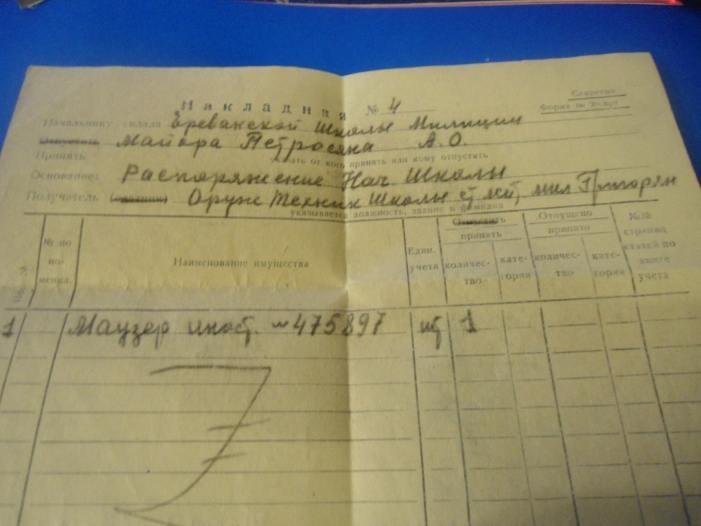 Секретно
Форма №
Накладная № 4
Начальнику склада Ереванской Школы Милиции
Отпустить Майора Петросяна А.О.
Принять указать от кого принять или кому отпустить
Основание: Распоряжение Нач Школы
Получатель Оруж Техник Школы ст лейт мил Григорян
указывается должность, звание и фамилия
№ по но- менкл.
Наименование имущества
Един. учета
Отпустить принять
количес- тво
кате- гория
Отпущено принято
количес- тво
кате- гория
№№ страниц статей по книге учета
1 Маузер иност. № 475897 шт 1